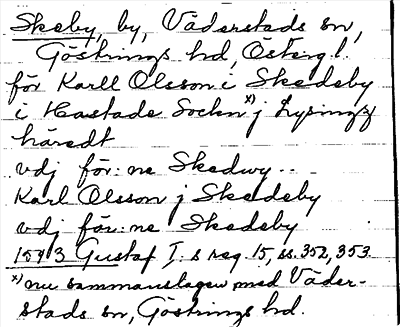 Skeby, by, Väderstads sn,
Göstrings hd, Österg l.
för Karll Olsson i Skedeby
i Hastade Sockn x) j Lysingz
häredt
vdj för:ne Skedwy..
Karl Olsson j Skedeby
vdj för:ne Skedeby
1543 Gustaf I:s reg. 15, ss. 352, 353.
x) nu sammanslagen med Väder-
stads sn, Göstrings hd.